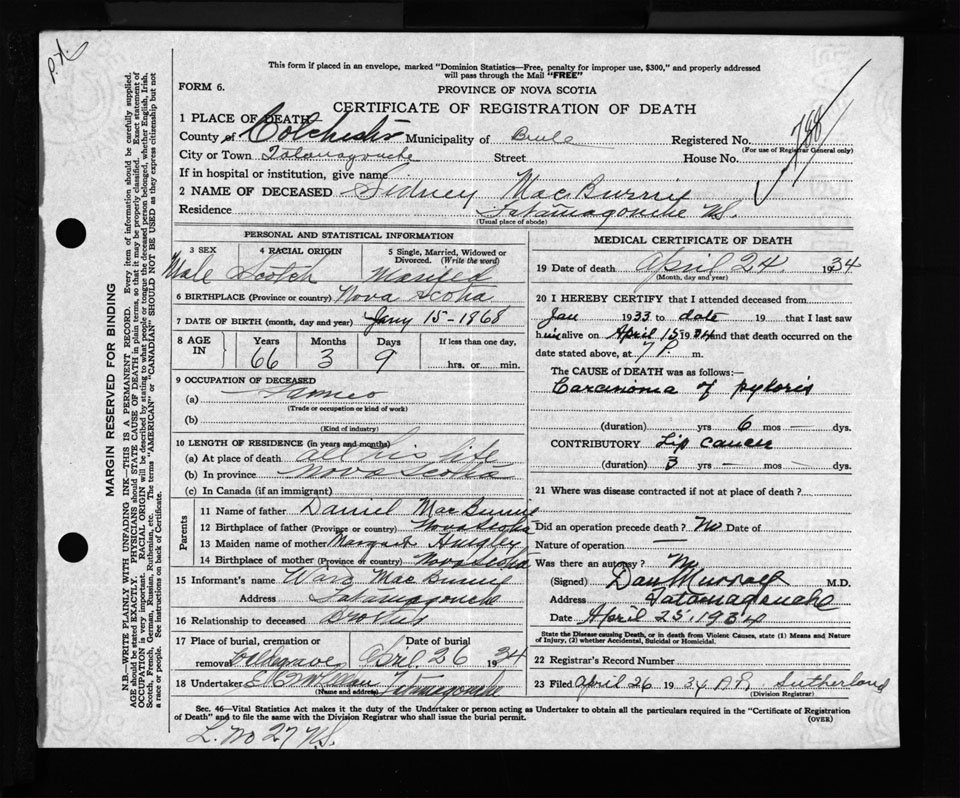 P.X.
This form if placed in an envelope, marked "Dominion Statistics—Free, penalty for improper use, $300," and properly addressed
will pass through the Mail "FREE"
FORM 6.
PROVINCE OF NOVA SCOTIA
CERTIFICATE OF REGISTRATION OF DEATH
1 PLACE OF DEATH
County of Colchester Municipality of Registered No. 788
(For use of Registrar General only)
City or Town Tatamagouche Street House No.
If in hospital or institution, give name
2 NAME OF DECEASED Sidney MacBurnie
Residence Tatamagouche NS.
(Usual place of abode)
PERSONAL AND STATISTICAL INFORMATION
3 SEX 4 RACIAL ORIGIN 5 Single, Married, Widowed or
Divorced. (Write the word)
Male Scotch Married
6 BIRTHPLACE (Province or country) Nova Scotia
7 DATE OF BIRTH (month, day and year) Jany 15-1868
8 AGE IN Years Months Days If less than one day,
66 3 9 hrs. or min.
9 OCCUPATION OF DECEASED
(a) Farmer
(Trade or occupation or kind of work)
(b)
(Kind of industry)
10 LENGTH OF RESIDENCE (in years and months)
(a) At place of death all his life
(b) In province Nova Scotia
(c) In Canada (if an immigrant)
Parents
11 Name of father Daniel MacBurnie
12 Birthplace of father (Province or country) Nova Scotia
13 Maiden name of mother Margaret
14 Birthplace of mother (Province or country) Nova Scotia
15 Informant's name MacBurnie
Address Tatamagouche
16 Relationship to deceased Brother
17 Place of burial, cremation or Date of burial
removal April 26 1934
18 Undertaker Tatamagouche
(Name and address)
MEDICAL CERTIFICATE OF DEATH
19 Date of death April 24. 1934
(Month, day and year)
20 I HEREBY CERTIFY that I attended deceased from
Jan 1933 to date 19 that I last saw
him alive on April 15 1934 and that death occurred on the
date stated above, at 7 P. m.
The CAUSE of DEATH was as follows:—
Carcinoma of pyloris
(duration) yrs 6 mos — dys.
CONTRIBUTORY Lip cancer
(duration) 3 yrs — mos — dys.
21 Where was disease contracted if not at place of death?
Did an operation precede death? No Date of
Nature of operation —
Was there an autopsy? No
(Signed) Dan Murray M.D.
Address Tatamagouche
Date April 25, 1934
State the Disease causing Death, or in death from Violent Causes, state (1) Means and Nature
of Injury, (2) whether Accidental, Suicidal or Homicidal.
22 Registrar's Record Number
23 Filed April 26 1934 Sutherland
(Division Registrar)
Sec. 46—Vital Statistics Act makes it the duty of the Undertaker or person acting as Undertaker to obtain all the particulars required in the "Certificate of Registration
of Death" and to file the same with the Division Registrar who shall issue the burial permit.
(OVER)
L. No 27 NS.
MARGIN RESERVED FOR BINDING
N.B.—WRITE PLAINLY WITH UNFADING INK—THIS IS A PERMANENT RECORD. Every item of information should be carefully supplied.
AGE should be stated EXACTLY. PHYSICIANS should STATE CAUSE OF DEATH in plain terms, so that it may be properly classified. Exact statement of
OCCUPATION is very important. RACIAL ORIGIN will be described by stating to what people or tongue the deceased person belonged, whether English, Irish,
Scotch, French, German, Russian, Ruthenian, etc. The terms "AMERICAN" or "CANADIAN" SHOULD NOT BE USED as they express citizenship but not
a race or people. See instructions on back of Certificate.